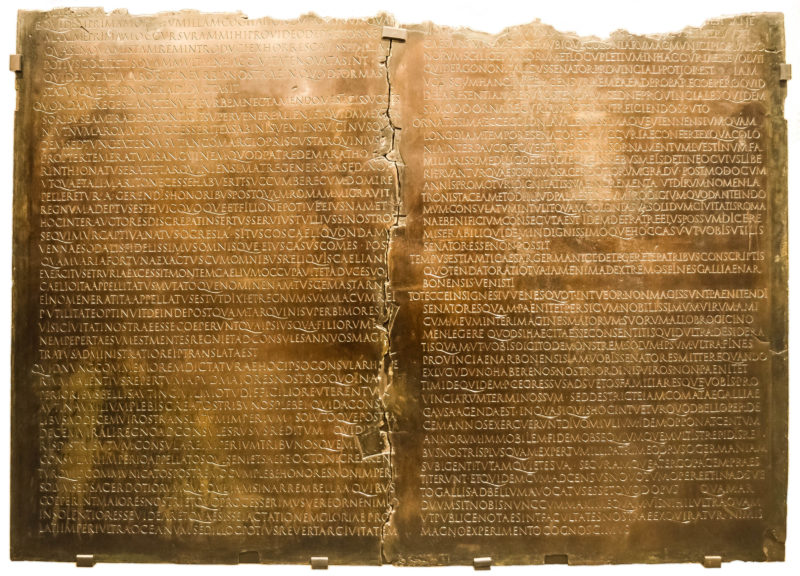 EQVIDEM PRIMAM OMNIVM ILLAM COGITATIONEM HOMINVM QVAM
MAXIME PRIMAM OCCVRSVRAM MIHI PROVIDEO DEPRECOR NE
QVASI NOVAM ISTAM REM INTRODVCI EXHORRESCATIS SED ILLA
POTIVS COGITETIS QVAM MVLTA IN HAC CIVITATE NOVATA SINT ET
QVIDEM STATIM AB ORIGINE VRBIS NOSTRAE IN QVOD FORMAS
STATVSQVE RES P NOSTRA DIDVCTA SIT
QVONDAM REGES HANC TENVERE VRBEM NEC TAMEN DOMESTICIS SVCCES
SORIBVS EAM TRADERE CONTIGIT SVPERVENERE ALIENI ET QVIDAM EXTER
NI VT NVMA ROMVLO SVCCESSERIT EX SABINIS VENIENS VICINVS QVI
DEM SED TVNC EXTERNVS VT ANCO MARCIO PRISCVS TARQVINIVS
PROPTER TEMERATVM SANGVINEM QVOD PATRE DEMARATHO CO
RINTHIO NATVS ERAT ET TARQVINIENSI MATRE GENEROSA SED INOPI
VT QVAE TALI MARITO NECESSE HABVERIT SVCCVMBERE CVM DOMI RE
PELLERETVR A GERENDIS HONORIBVS POSTQVAM ROMAM MIGRAVIT
REGNVM ADEPTVS EST HVIC QVOQVE ET FILIO NEPOTIVE EIVS NAM ET
HOC INTER AVCTORES DISCREPAT INSERTVS SERVIVS TVLLIVS SI NOSTROS
SEQVIMVR CAPTIVA NATVS OCRESIA SI TVSCOS CAELI QVONDAM VI
VENNAE SODALIS FIDELISSIMVS OMNISQVE EIVS CASVS COMES POST
QVAM VARIA FORTVNA EXACTVS CVM OMNIBVS RELIQVIS CAELIANI
EXERCITVS ETRVRIA EXCESSIT MONTEM CAELIVM OCCVPAVIT ET A DVCE SVO
CAELIO ITA APPELLITATVS MVTATOQVE NOMINE NAM TVSCE MASTARNA
EI NOMEN ERAT ITA APPELLATVS EST VT DIXI ET REGNVM SVMMA CVM REI
P VTILITATE OPTINVIT DEINDE POSTQVAM TARQVINI SVPERBI MORES IN
VISI CIVITATI NOSTRAE ESSE COEPERVNT QVA IPSIVS QVA FILIORVM EIVS
NEMPE PERTAESVM EST MENTES REGNI ET AD CONSVLES ANNVOS MAGIS
TRATVS ADMINISTRATIO REI P TRANSLATA EST
QVID NVNC COMMEMOREM DICTATVRAE HOC IPSO CONSVLARI IMPE
RIVM VALENTIVS REPERTVM APVT MAIORES NOSTROS QVO IN AS
PERIORIBVS BELLIS AVT IN CIVILI MOTV DIFFICILIORE VTERENTVR
AVT IN AVXILIVM PLEBIS CREATOS TRIBVNOS PLEBEI QVID A CONSV
LIBVS AD DECEMVIROS TRANSLATVM IMPERIVM SOLVTOQVE POSTEA
DECEMVIRALI REGNO AD CONSVLES RVSVS REDITVM QVID IN
RIS DISTRIBVTVM CONSVLARE IMPERIVM TRIBVNOSQVE
CONSVLARI IMPERIO APPELLATOS QVI SENI ET SAEPE OCTONI CREAREN
TVR QVID COMMVNICATOS POSTREMO CVM PLEBE HONORES NON IMPERI
SOLVM SED SACERDOTIORVM QVOQVE IAM SI NARREM BELLA A QVIBVS
COEPERINT MAIORES NOSTRI ET QVO PROCESSERIMVS VEREOR NE NIMIO
INSOLENTIOR ESSE VIDEAR ET QVAESISSE IACTATIONEM GLORIAE PRO
LATI IMPERI VLTRA OCEANVM SED ILLOC POTIVS REVERTAR CIVITATEM
OMNEM FLOREM VBIQVE COLONIARVM AC MVNICIPIORVM BO
NORVM SCILICET VIRORVM ET LOCVPLETIVM IN HAC CVRIA ESSE VOLVIT
QVID ERGO NON ITALICVS SENATOR PROVINCIALI POTIOR EST IAM
VOBIS CVM HANC PARTEM CENSVRAE MEAE ADPROBARE COEPERO QVID
DE EA RE SENTIAM REBVS OSTENDAM SED NE PROVINCIALES QVIDEM
SI MODO ORNARE CVRIAM POTERINT REICIENDOS PVTO
ORNATISSIMA ECCE COLONIA VALENTISSIMAQVE VIENNENSIVM QVAM
LONGO IAM TEMPORE SENATORES HVIC CVRIAE CONFERT EX QVA COLO
NIA INTER PAVCOS EQVESTRIS ORDINIS ORNAMENTVM L VESTINVM FA
MILIARISSIME DILIGO ET HODIEQVE IN REBVS MEIS DETINEO CVIVS LIBE
RI FRVANTVR QVAESO PRIMO SACERDOTIORVM GRADV POST MODO CVM
ANNIS PROMOTVRI DIGNITATIS SVAE INCREMENTA VT DIRVM NOMEN LA
TRONIS TACEAM ET ODI ILLVD PALAESTRICVM PRODIGIVM QVOD ANTE IN DO
MVM CONSVLATVM INTVLIT QVAM COLONIA SVA SOLIDVM CIVITATIS ROMA
NAE BENIFICIVM CONSECVTA EST IDEM DE FRATRE EIVS POSSVM DICERE
MISERABILI QVIDEM INDIGNISSIMOQVE HOC CASV VT VOBIS VTILIS
SENATOR ESSE NON POSSIT
TEMPVS EST IAM TI CAESAR GERMANICE DETEGERE TE PATRIBVS CONSCRIPTIS
QVO TENDAT ORATIO TVA IAM ENIM AD EXTREMOS FINES GALLIAE NAR
BONENSIS VENISTI
TOT ECCE INSIGNES IVVENES QVOT INTVEOR NON MAGIS SVNT PAENITENDI
SENATORES QVAM PAENITET PERSICVM NOBILISSIMVM VIRVM AMI
CVM MEVM INTER IMAGINES MAIORVM SVORVM ALLOBROGICI NO
MEN LEGERE QVOD SI HAEC ITA ESSE CONSENTITIS QVID VLTRA DESIDERA
TIS QVAM VT VOBIS DIGITO DEMONSTREM SOLVM IPSVM VLTRA FINES
PROVINCIAE NARBONENSIS IAM VOBIS SENATORES MITTERE QVANDO
EX LVGVDVNO HABERE NOS NOSTRI ORDINIS VIROS NON PAENITET
TIMIDE QVIDEM P C EGRESSVS ADSVETOS FAMILIARESQVE VOBIS PRO
VINCIARVM TERMINOS SVM SED DESTRICTE IAM COMATAE GALLIAE
CAVSA AGENDA EST IN QVA SI QVIS HOC INTVETVR QVOD BELLO PER DE
CEM ANNOS EXERCVERVNT DIVOM IVLIVM IDEM OPPONAT CENTVM
ANNORVM IMMOBILEM FIDEM OBSEQVIVMQVE MVLTIS TREPIDIS RE
BVS NOSTRIS PLVS QVAM EXPERTVM ILLI PATRI MEO DRVSO GERMANIAM
SVBIGENTI TVTAM QVIETE SVA SECVRAMQVE A TERGO PACEM PRAES
TITERVNT ET QVIDEM CVM AD CENSVS NOVO TVM OPERE ET INADSVE
TO GALLIS AD BELLVM AVOCATVS ESSET QVOD OPVS QVAM AR
DVVM SIT NOBIS NVNC CVM MAXIME QVAMVIS NIHIL VLTRA QVAM
VT PVBLICE NOTAE SINT FACVLTATES NOSTRAE EXQVIRATVR NIMIS
MAGNO EXPERIMENTO COGNOSCIMVS